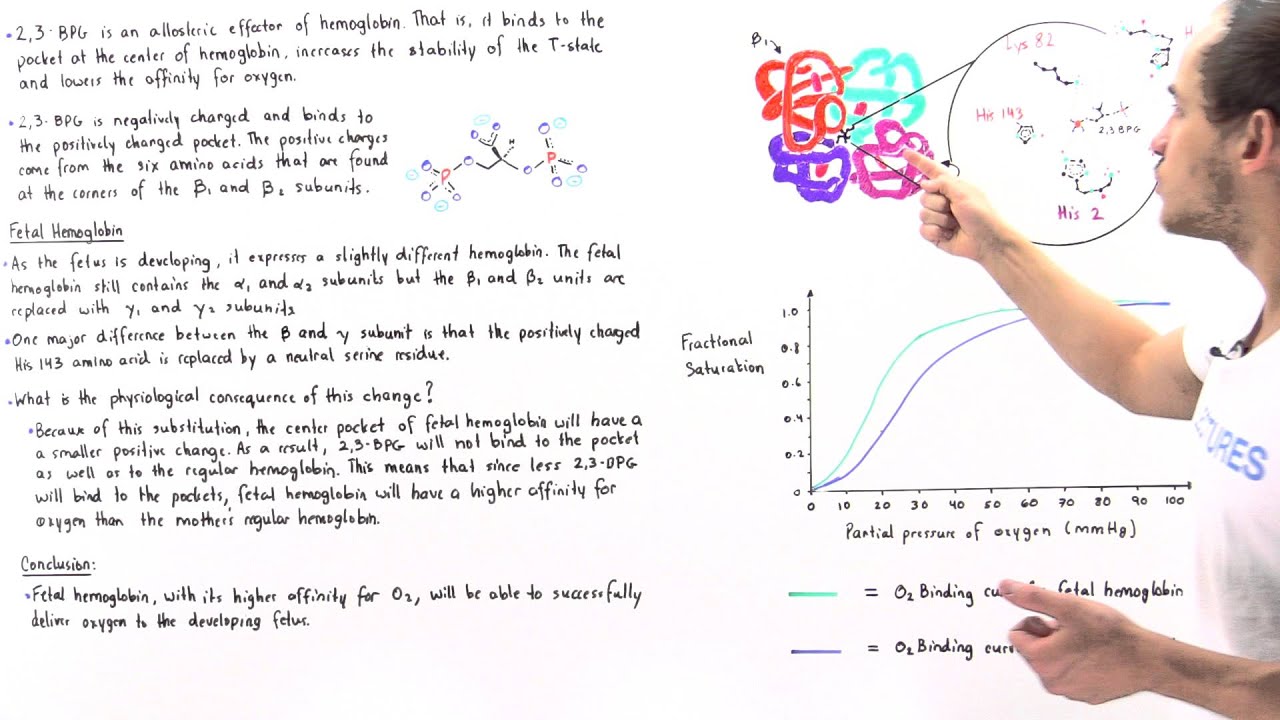 • 2,3-BPG is an allosteric effector of hemoglobin. That is, it binds to the
pocket at the center of hemoglobin, increases the stability of the T-state
and lowers the affinity for oxygen.
• 2,3-BPG is negatively charged and binds to
the positively charged pocket. The positive charges
come from the six amino acids that are found
at the corners of the β₁ and β₂ subunits.
Fetal Hemoglobin
• As the fetus is developing, it expresses a slightly different hemoglobin. The fetal
hemoglobin still contains the α₁ and α₂ subunits but the β₁ and β₂ units are
replaced with γ₁ and γ₂ subunits
• One major difference between the β and γ subunit is that the positively charged
His 143 amino acid is replaced by a neutral serine residue.
• What is the physiological consequence of this change?
• Because of this substitution, the center pocket of fetal hemoglobin will have a
a smaller positive change. As a result, 2,3-BPG will not bind to the pocket
as well as to the regular hemoglobin. This means that since less 2,3-BPG
will bind to the pockets, fetal hemoglobin will have a higher affinity for
oxygen than the mother's regular hemoglobin.
Conclusion:
• Fetal hemoglobin, with its higher affinity for O₂, will be able to successfully
deliver oxygen to the developing fetus.
P
P
H
β₁
Lys 82
H
His 143
2,3-BPG
His 2
Fractional
Saturation
1.0
0.8
0.6
0.4
0.2
0
0 10 20 30 40 50 60 70 80 90 100
Partial pressure of oxygen (mmHg)
= O₂ Binding fetal hemoglobin
= O₂ Binding
CTURES